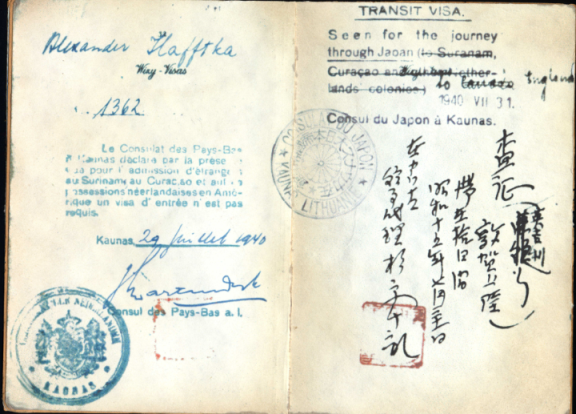 Alexander Hafftka
Wizy-Visas
1362
Le Consulat des Pays-Bas
à Kaunas déclare par la présente
que pour l'admission d'étrangers
au Surinam, au Curaçao et autres
possessions néerlandaises en Amé-
rique un visa d'entrée n'est pas
requis.
Kaunas, 29 Juillet 1940
Consul des Pays-Bas a. i.
KAUNAS
TRANSIT VISA.
Seen for the journey
through Japan (to Suranam,
Curaçao and other Nether-
lands colonies) to Canada England
1940 VII 31.
Consul du Japon à Kaunas.
CONSULAT DU JAPON
KAUNAS
LITHUANIE
査証
敦賀上陸
滞在拾日間
昭和十五年七月三一日
在カウナス
領事代理 杉原千畝